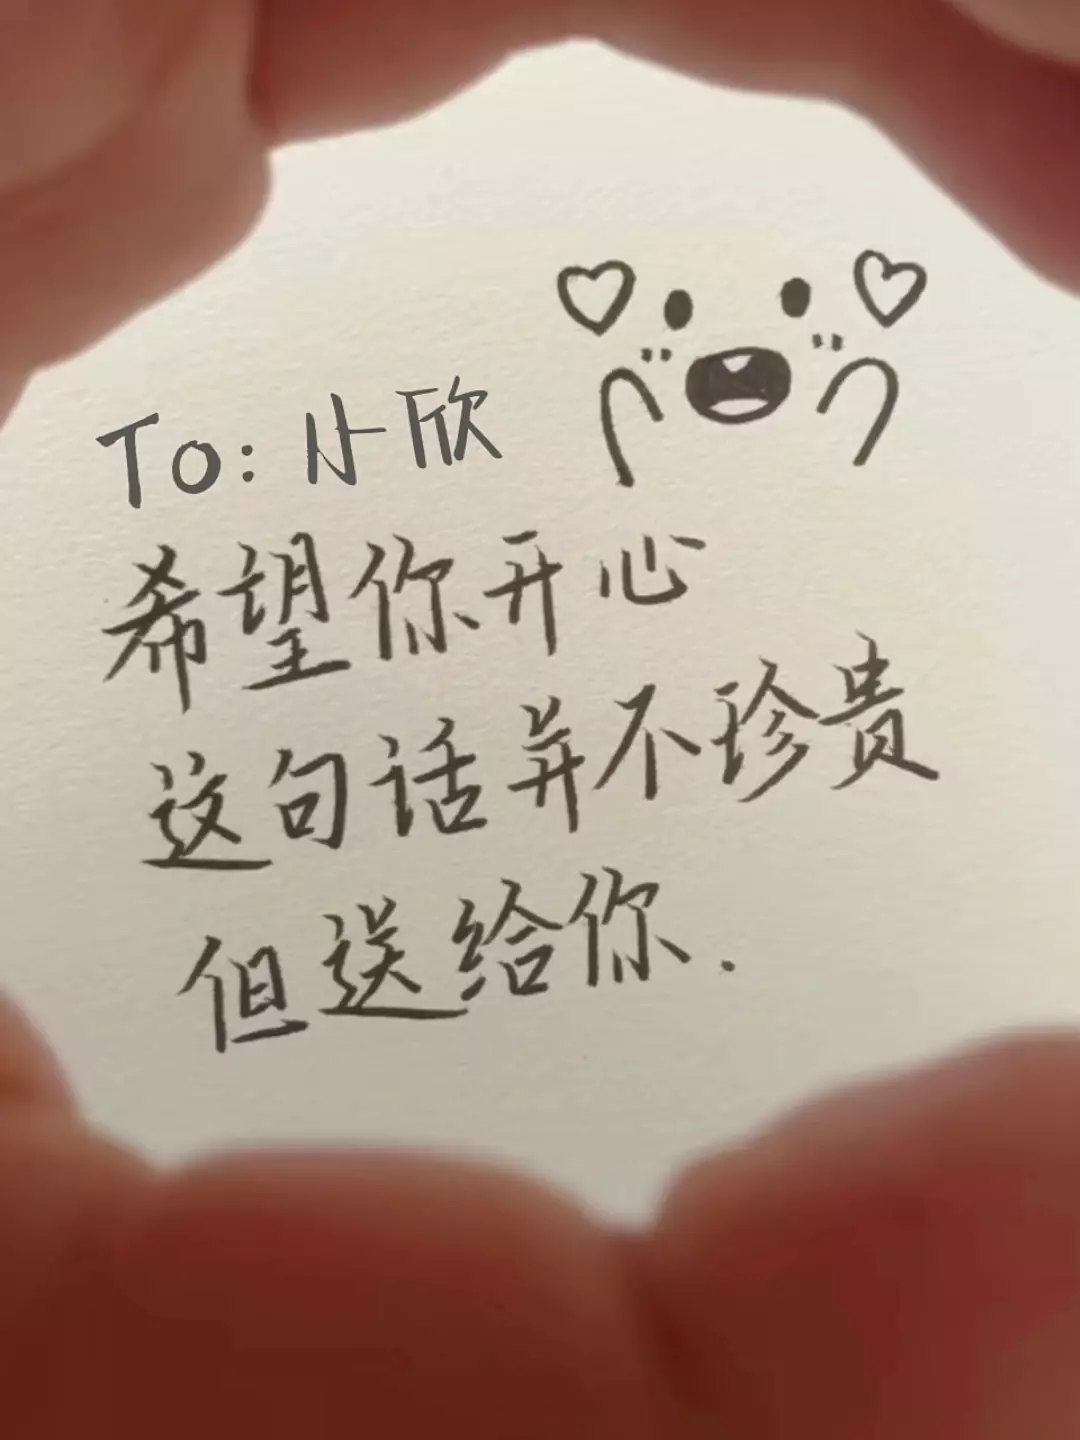 To: 小欣
希望你开心
这句话并不珍贵
但送给你.